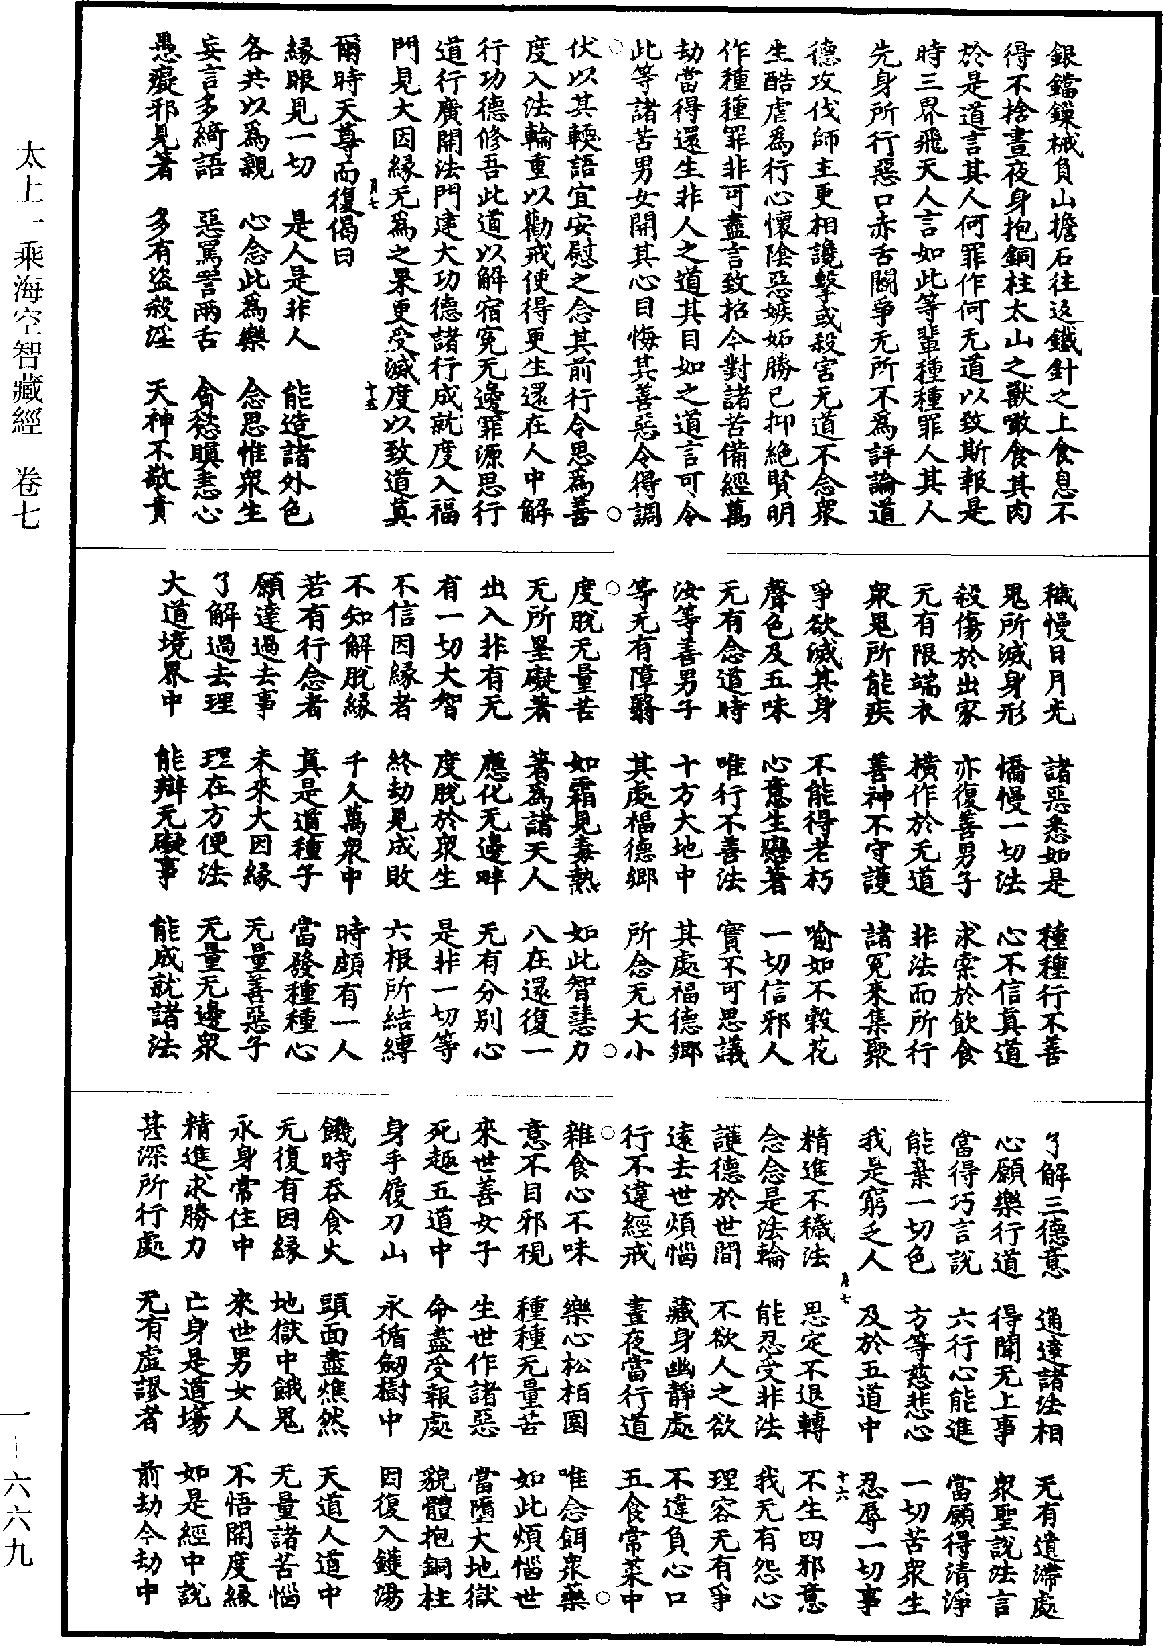 太上一乘海空智藏經　卷七
一一六六九
銀鐺鏁械負山擔石往返鐵針之上食息不
得不捨晝夜身抱銅柱太山之獸噉食其肉
於是道言其人何罪作何无道以致斯報是
時三界飛天人言如此等輩種種罪人其人
先身所行惡口赤舌鬬爭无所不爲評論道
德攻伐師主更相讒擊或殺害无道不念衆
生酷虐爲行心懷陰惡嫉妬勝己抑絕賢明
作種種罪非可盡言致招今對諸苦備經萬
劫當得還生非人之道其目如之道言可令
此等諸苦男女開其心目悔其善惡令得調
伏以其輭語宜安慰之念其前行令思爲善
度入法輪重以勸戒使得更生還在人中解
行功德修吾此道以解宿冤无邊罪源思行
道行廣開法門建大功德諸行成就度入福
門見大因緣无爲之果更受滅度以致道真
爾時天尊而復偈曰
月七
十五
緣眼見一切　是人是非人　能造諸外色
各共以爲親　心念此爲樂　念思惟衆生
妄言多綺語　惡罵詈兩舌　貪慾瞋恚心
愚癡邪見著　多有盜殺淫　天神不敬責
穢慢日月光　諸惡悉如是　種種行不善
鬼所滅身形　憍慢一切法　心不信真道
殺傷於出家　亦復善男子　求索於飲食
无有限端衣　橫作於无道　非法而所行
衆鬼所能疾　善神不守護　諸冤來集聚
爭欲滅其身　不能得老朽　喻如不穀花
聲色及五味　心意生戀著　一切信邪人
无有念道時　唯行不善法　實不可思議
汝等善男子　十方大地中　其處福德鄉
等无有障翳　其處福德鄉　所念无大小
度脫无量苦　如霜見毒熱　如此智慧力
无所罣礙著　著爲諸天人　八在還復一
出入非有无　應化无邊畔　无有分別心
有一切大智　度脫於衆生　是非一切等
不信因緣者　終劫見成敗　六根所結縛
不知解脫緣　千人萬衆中　時頗有一人
若有行念者　真是道種子　當發種種心
願達過去事　未來大因緣　无量善惡子
了解過去理　理在方便法　无量无邊衆
大道境界中　能辯无礙事　能成就諸法
了解三德意　通達諸法相　无有遺滯處
心願樂行道　得聞无上事　衆聖說法言
當得巧言說　六行心能進　當願得清淨
能棄一切色　方等慈悲心　一切苦衆生
我是窮乏人　及於五道中　忍辱一切事
月七
十六
精進不穢法　思定不退轉　不生四邪意
念念是法輪　能忍受非法　我无有怨心
護德於世間　不欲人之欲　理容无有爭
遠去世煩惱　藏身幽靜處　不違負心口
行不違經戒　晝夜當行道　五食常菜中
雜食心不味　樂心松柏園　唯念餌衆藥
意不目邪視　種種无量苦　如此煩惱世
來世善女子　生世作諸惡　當墮大地獄
死趣五道中　命盡受報處　貌體抱銅柱
身手履刀山　永循劒樹中　因復入鑊湯
饑時吞食火　頭面盡燋然　天道人道中
无復有因緣　地獄中餓鬼　无量諸苦惱
永身常住中　來世男女人　不悟開度緣
精進求勝力　亡身是道場　如是經中說
甚深所行處　无有虛謬者　前劫今劫中